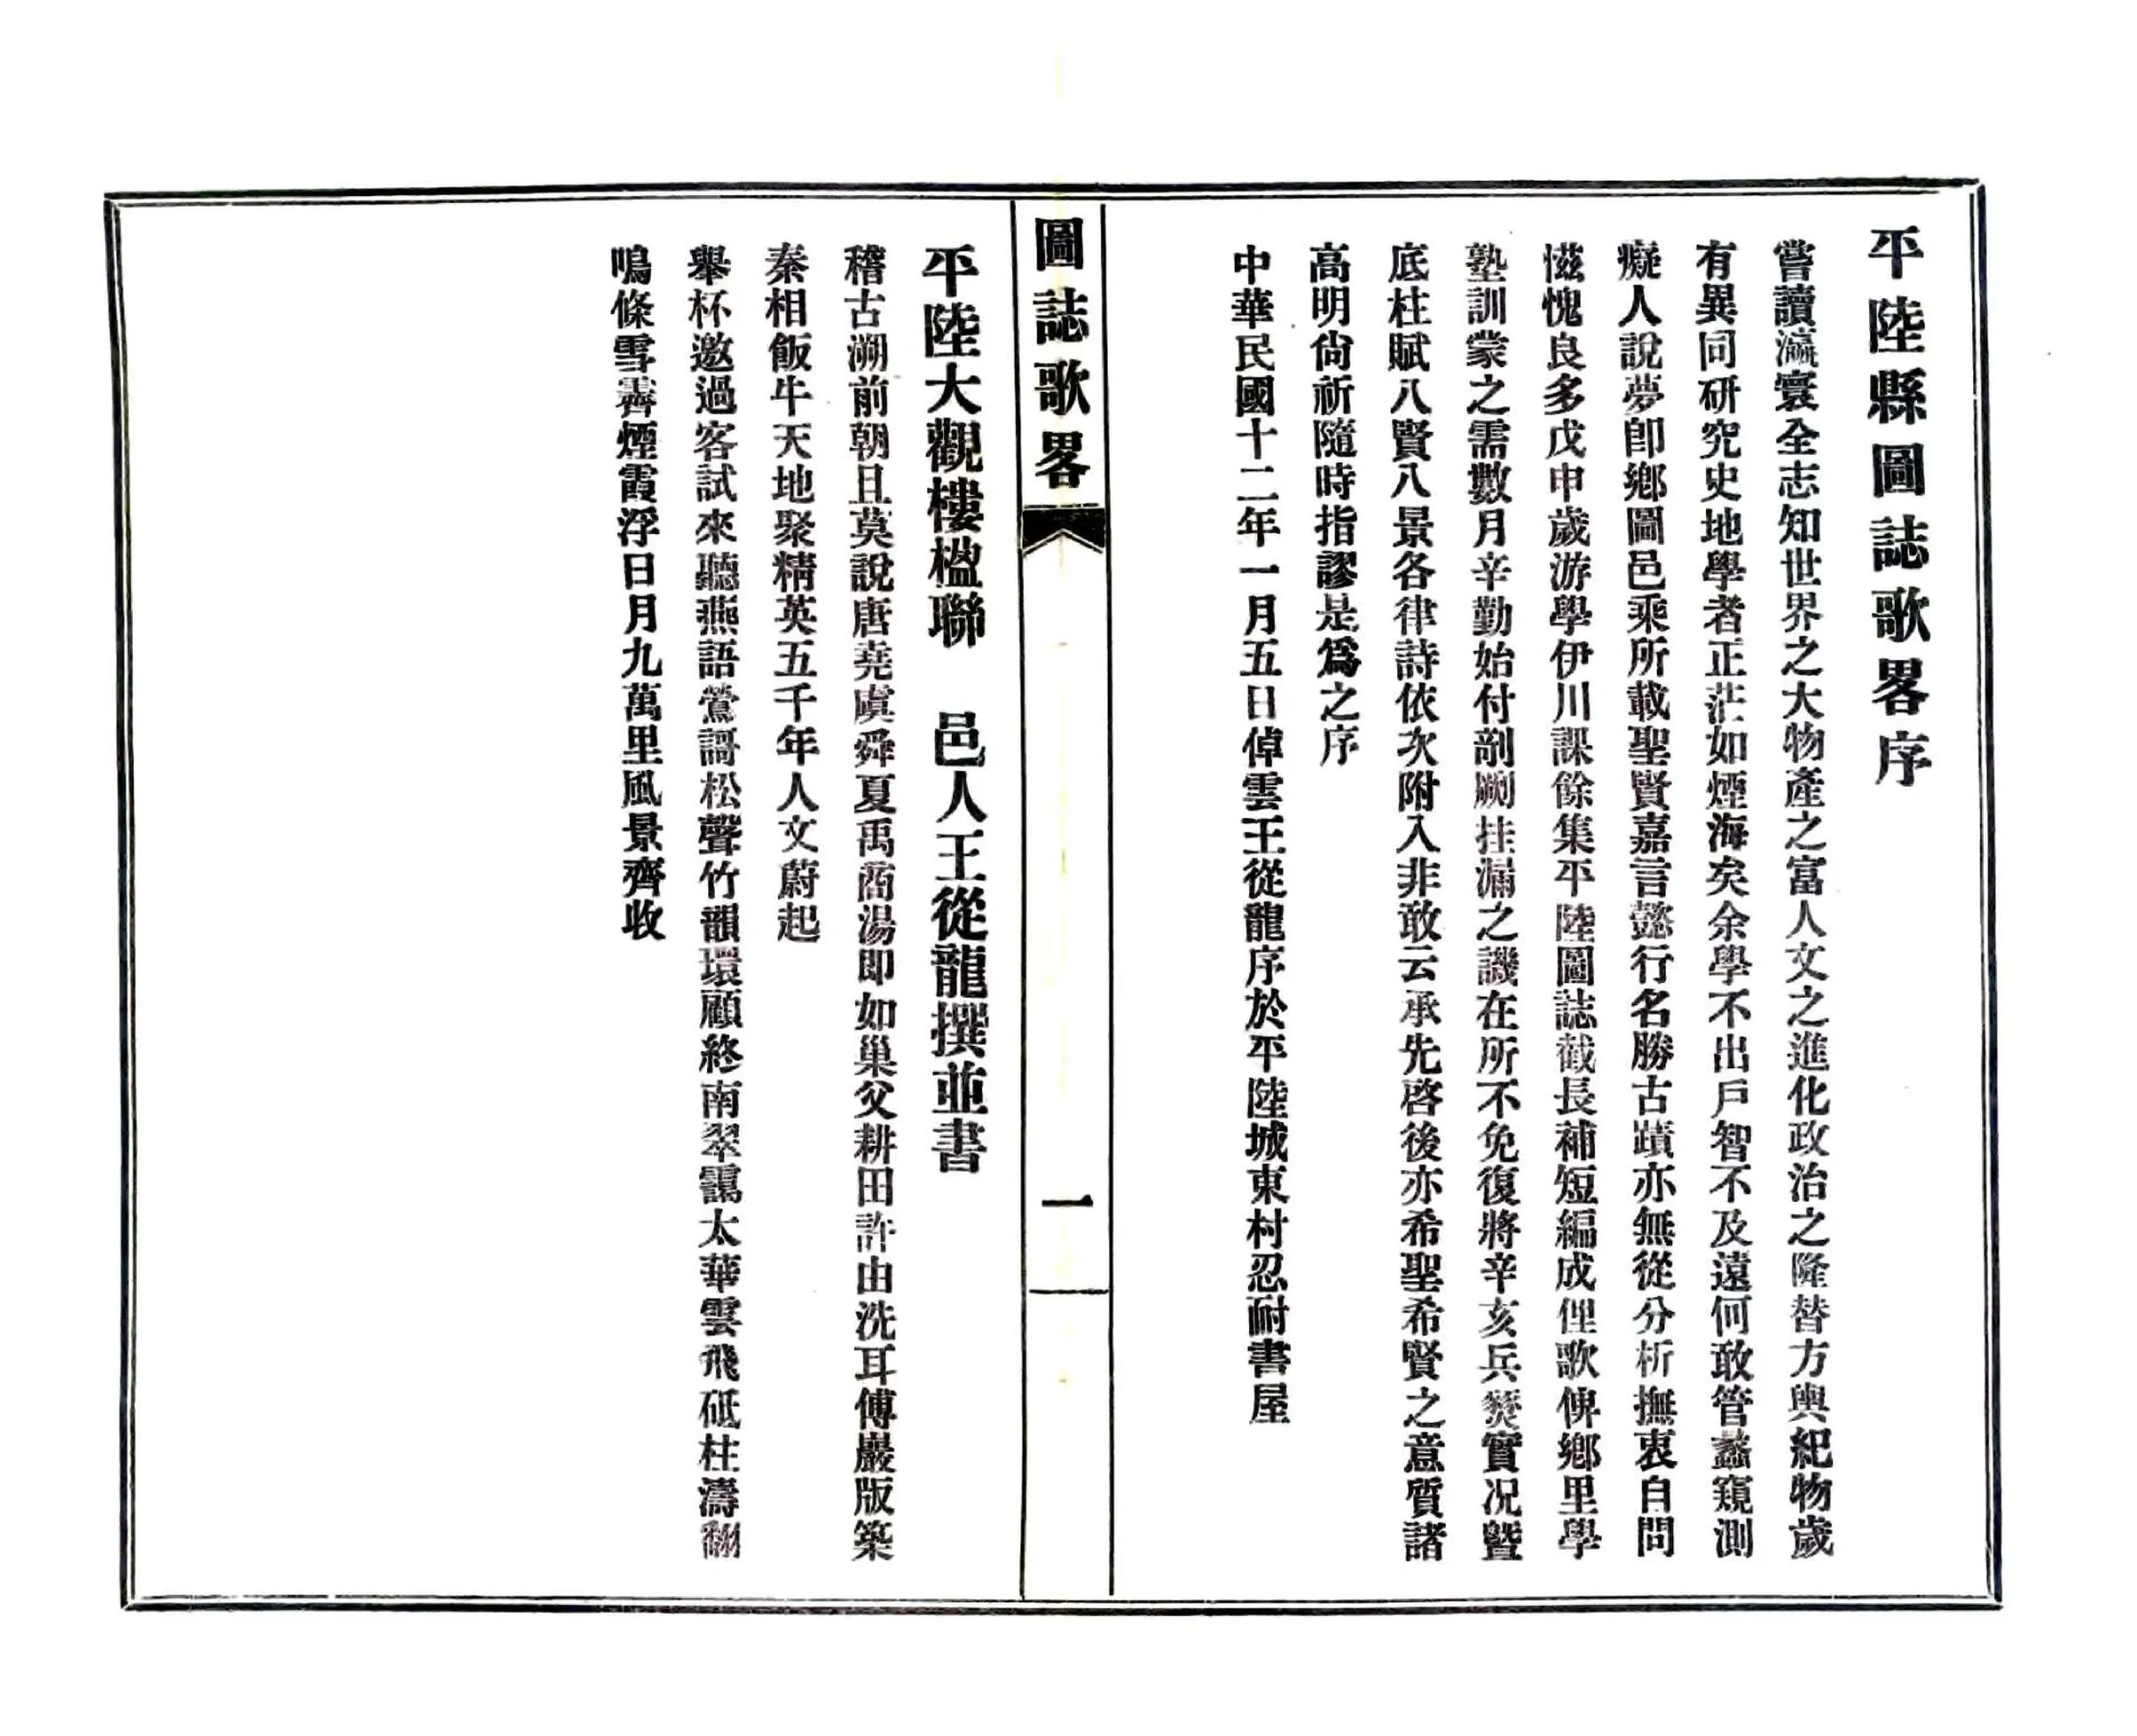 平陸縣圖誌歌畧序
嘗讀瀛寰全志知世界之大物產之富人文之進化政治之隆替方輿紀物歲
有異同研究史地學者正茫如煙海矣余學不出戶智不及遠何敢管蠡窺測
癡人說夢卽鄉圖邑乘所載聖賢嘉言懿行名勝古蹟亦無從分析撫衷自問
慚愧良多戊申歲游學伊川課餘集平陸圖誌截長補短編成俚歌俾鄉里學
塾訓蒙之需數月辛勤始付剞劂挂漏之譏在所不免復將辛亥兵燹實况曁
底柱賦八賢八景各律詩依次附入非敢云承先啓後亦希聖希賢之意質諸
高明尙祈隨時指謬是爲之序
中華民國十二年一月五日倬雲王從龍序於平陸城東村忍耐書屋
圖誌歌畧
一
平陸大觀樓楹聯 邑人王從龍撰並書
稽古溯前朝且莫說唐堯虞舜夏禹商湯即如巢父耕田許由洗耳傅巖版築
秦相飯牛天地聚精英五千年人文蔚起
舉杯邀過客試來聽燕語鶯謌松聲竹韻環顧終南翠靄太華雲飛砥柱濤翻
鳴條雪霽煙霞浮日月九萬里風景齊收